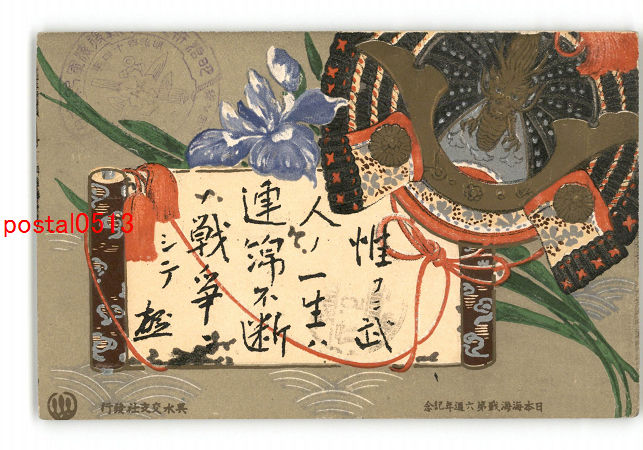 惟フニ武
人ノ一生ハ
連綿不断
ノ戦争ニ
シテ
日本海海戰第六週年記念
呉水交支社發行
postal0513